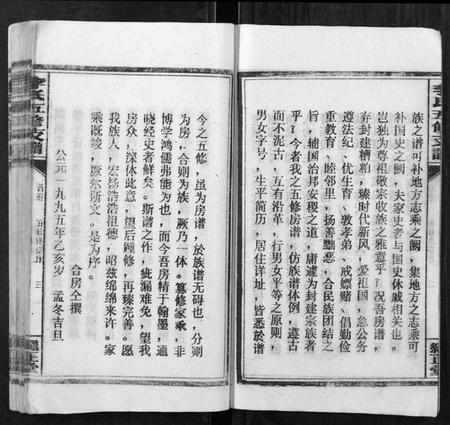 族之谱可补地方志乘之阙，集地方之志乘可
补国史之阙，夫家史者与国史休戚相关也。
岂独为尊祖敬宗收族之雅意乎？况吾房谱，
弃封建糟粕，臻时代新风，爱祖国，急公务
遵法纪、优生育、敦孝弟、戒嫖赌、倡勤俭
重教育、睦邻里，扬善黜恶，合民族团结之
旨，辅国治邦安穰之道，庸遽为封建宗族者
也？今者我之五修房谱，仿族谱体例，遵古
而不泥古，有因有沿革，行男女平等之原则，
男女字号，生平简历，居住详址，皆悉於谱
今之五修，虽为房谱，於族谱无碍也，分则
为房，合则为族，厥乃一体。篹修家乘，非
博学鸿儒弗能为也，而今吾房精于翰墨，通
晓经史者鲜矣。斯谱之作，疵漏难免，望我
房众，深体此意，望后顾修，再臻完善。愿
我族人，宏扬浩浩祖德，昭兹绵绵来许。家
乘既竣，厥尔斯文。是为序。
合房仝撰
公元一九九五年乙亥岁 孟冬吉旦
李氏五修支谱
三